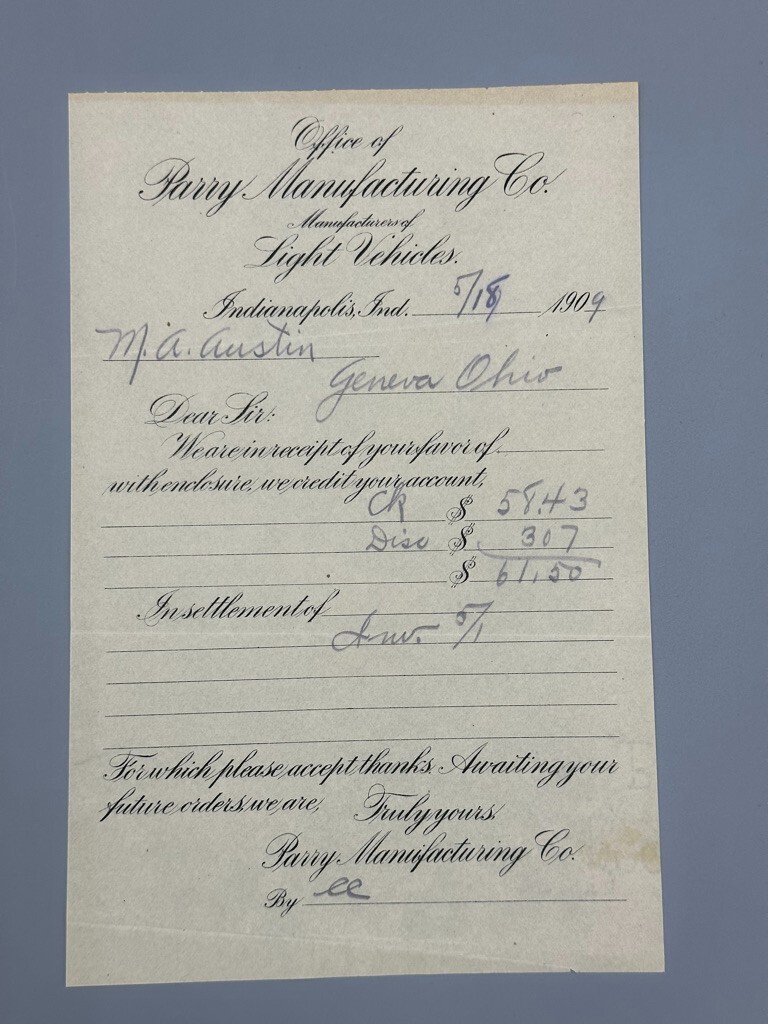 Office of
Parry Manufacturing Co.
Manufacturers of
Light Vehicles.
Indianapolis, Ind. 5/18 1909
M. A. Austin
Geneva Ohio
Dear Sir:
We are in receipt of your favor of
with enclosure, we credit your account,
Ck $ 58.43
Disc $ 307
$ 61.50
In settlement of
Inv. 5/1
For which please accept thanks. Awaiting your
future orders, we are, Truly yours,
Parry Manufacturing Co.
By ee